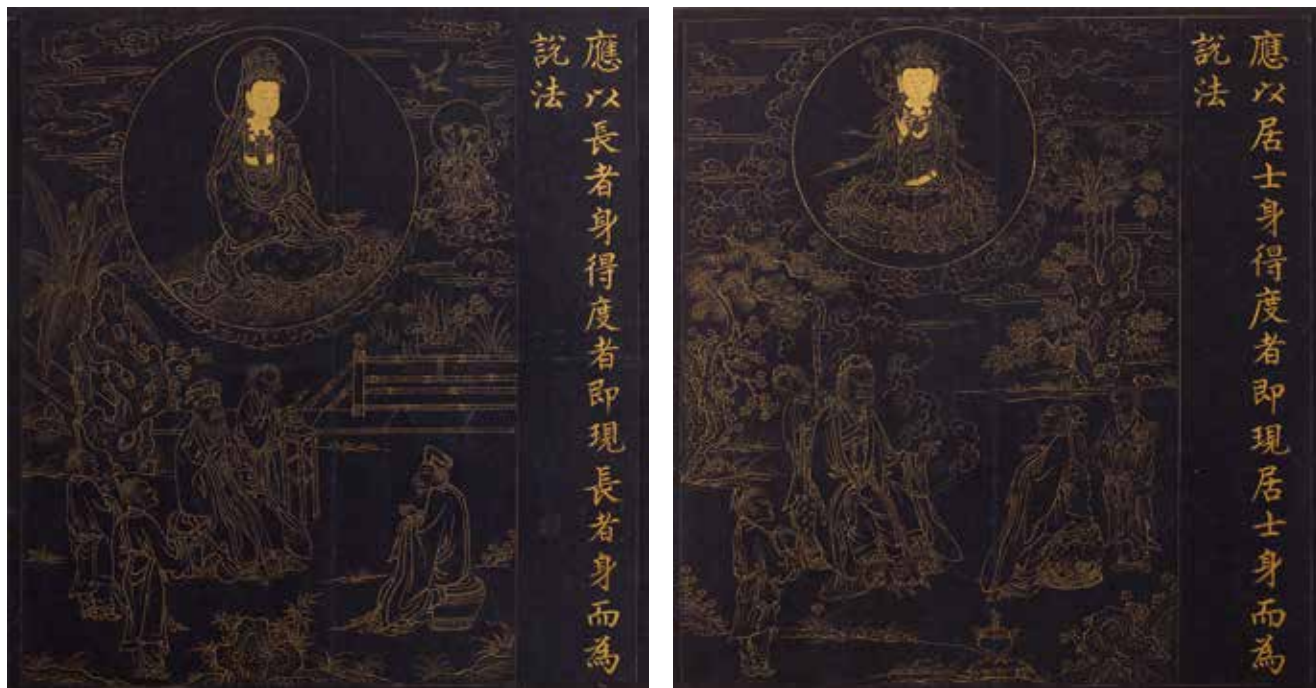 應以長者身得度者即現長者身而為
說法
應以居士身得度者即現居士身而為
說法